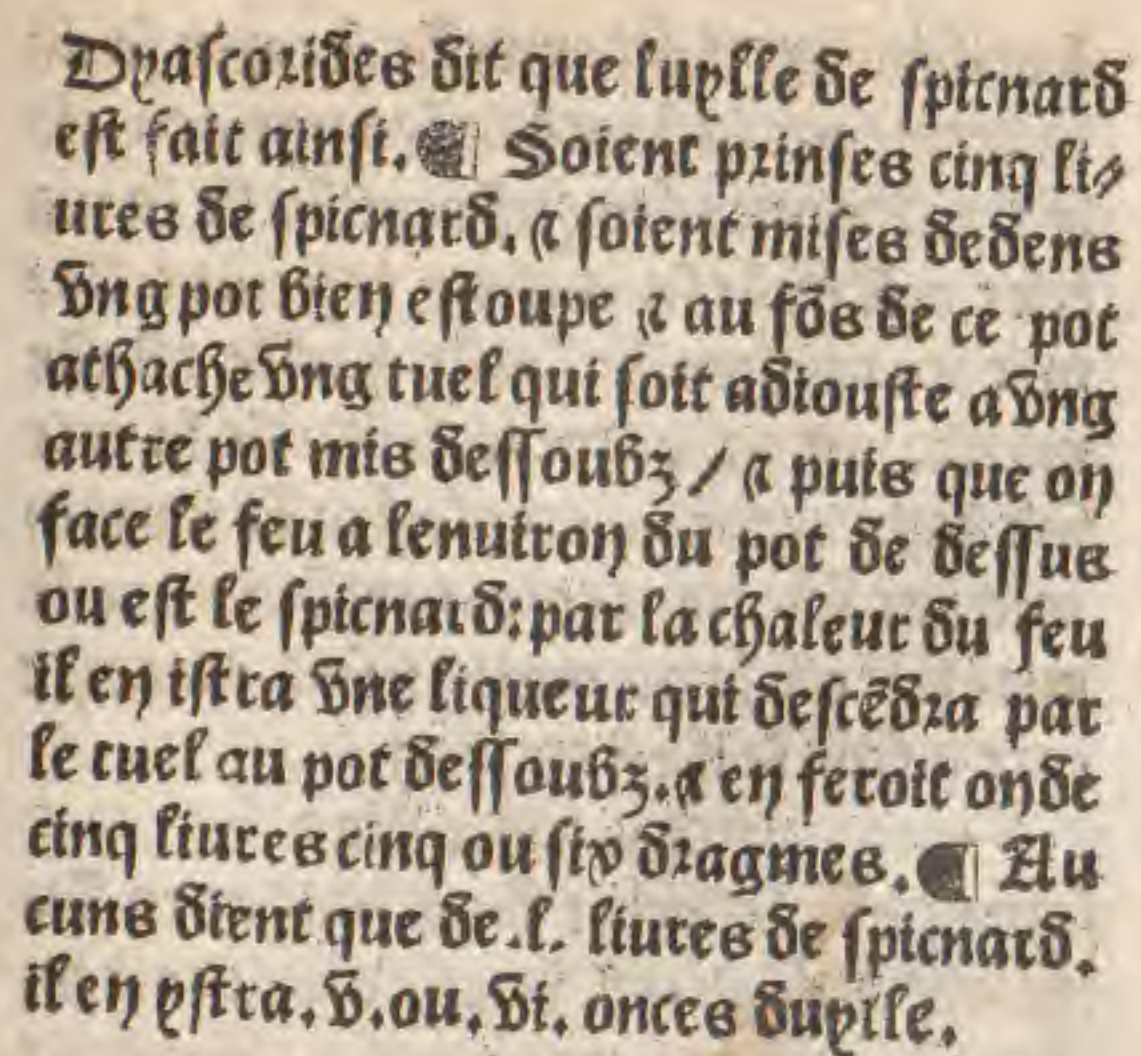 Dyaſcorides dit que luylle de ſpicnard
eſt fait ainſi. ¶ Soient prinſes cinq li⸗
ures de ſpicnard. ⁊ ſoient miſes dedens
vng pot bien eſtoupe ⁊ au fõs de ce pot
athache vng tuel qui ſoit adiouſte a vng
autre pot mis deſſoubz / ⁊ puis que on
face le feu a lenuiron du pot de deſſus
ou eſt le ſpicnard: par la chaleur du feu
il en iſtra vne liqueur qui deſcẽdra par
le tuel au pot deſſoubz. ⁊ en feroit on de
cinq liures cinq ou ſix dragmes. ¶ Au
cuns dient que de .l. liures de ſpicnard.
il en yſtra. v. ou. vi. onces duylle.